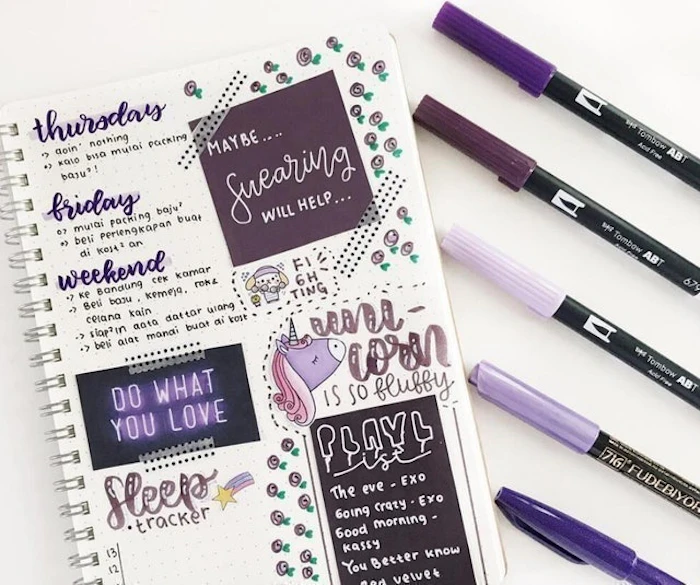 thursday
-> doin' nothing
-> kalo bisa mulai packing
baju?!
friday
-> mulai packing baju?
-> beli perlengkapan buat
di kost²an
weekend
-> ke Bandung cek kamar
-> Beli baju, kemeja, rok²
celana kain
-> siap²in data daftar ulang
-> beli alat mandi buat di kost
MAYBE....
Swearing
WILL HELP...
FI
GH
TING
uni-
corn
IS SO fluffy
DO WHAT
YOU LOVE
Sleep
.tracker
13
12
PLAYL
ist
The eve - Exo
Going crazy - Exo
Good morning -
kassy
You Better know
Red velvet
Tombow ABT
Acid Free
Tombow ABT
Acid Free
679
Tombow ABT
Acid Free
716 FUDEBIYO